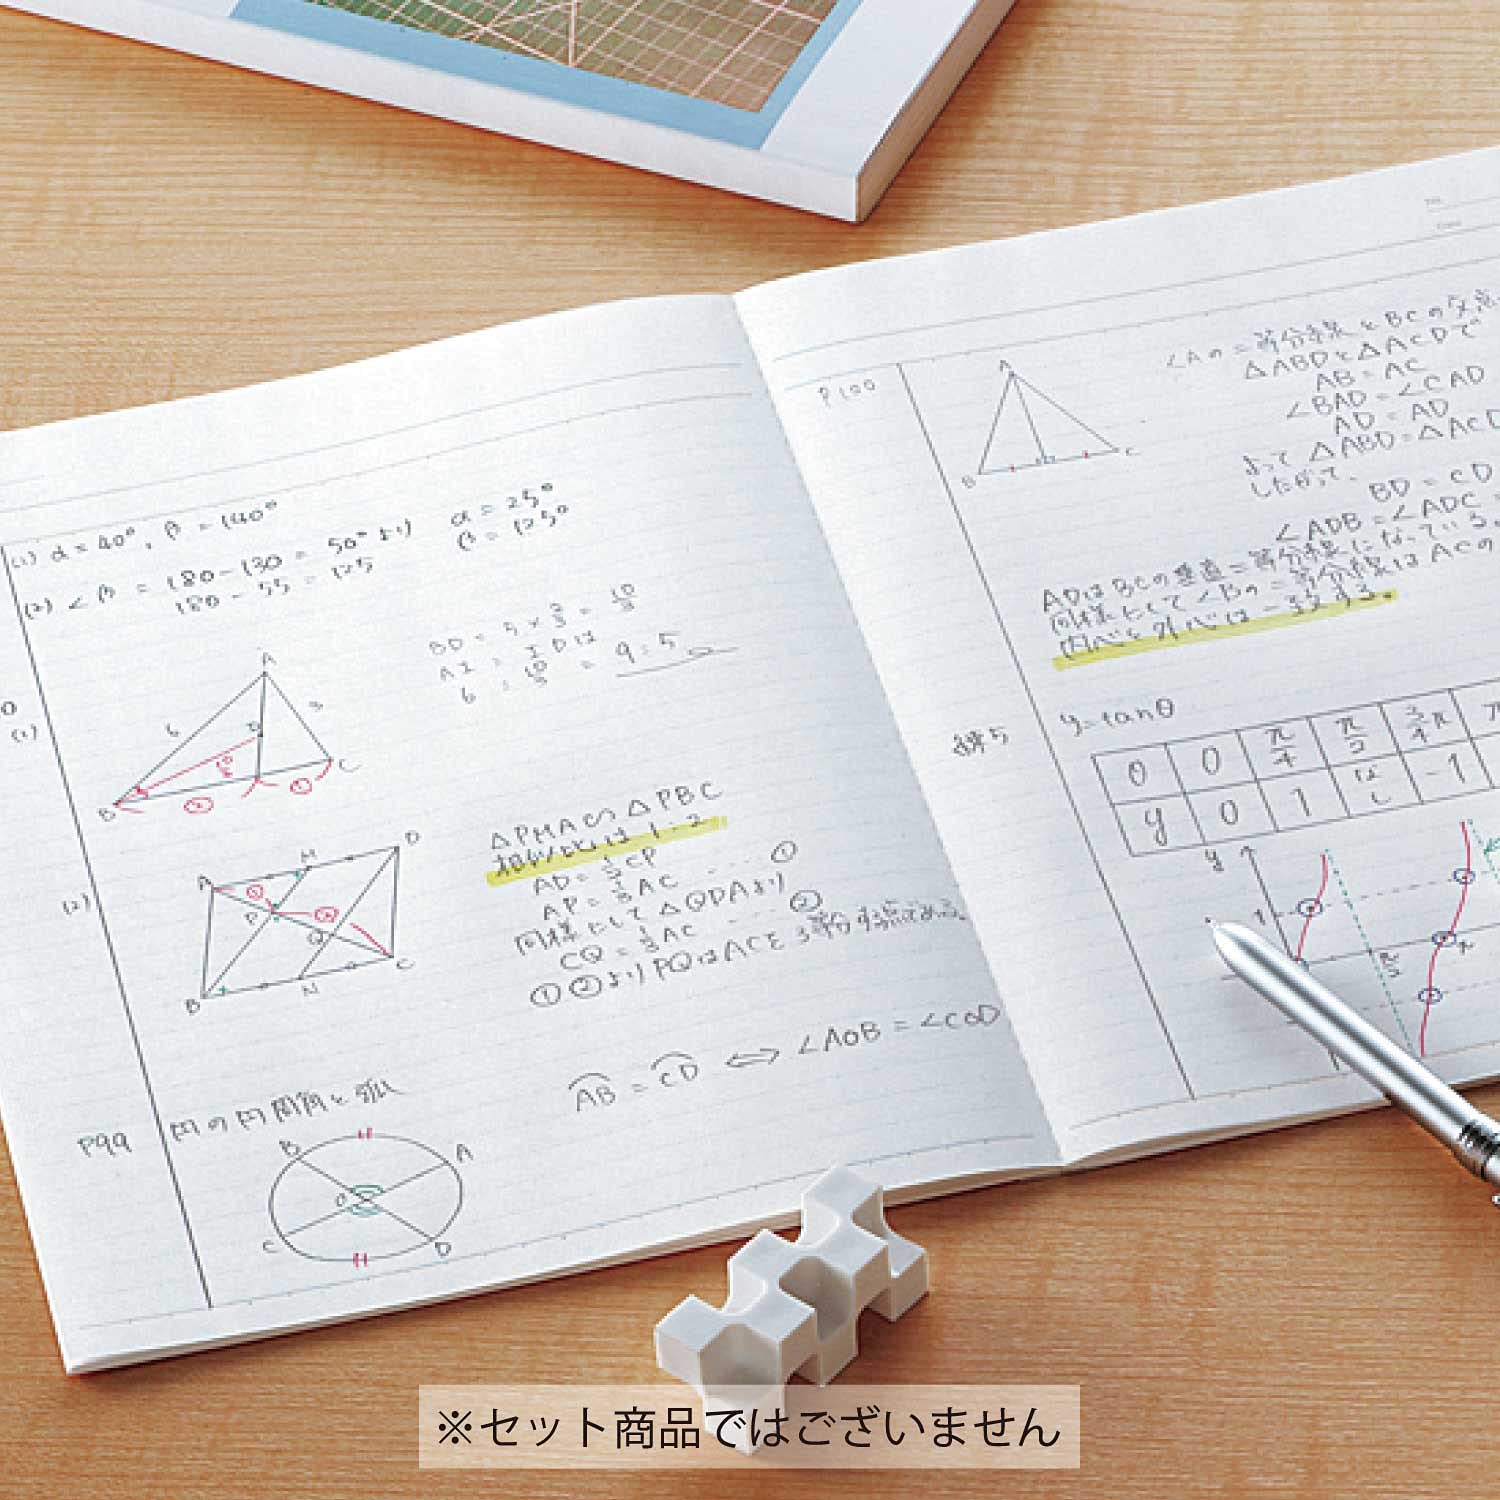 (1) α = 40°, β = 140°
α = 25°
β = 125°
(2) ∠β = 180 - 130 = 50° より
180 - 55 = 125
(1)
A
6
3
D
B
C
②
①
BD = 5 × 2/3 = 10/3
AI : ID は
6 : 10/3 = 9 : 5
(2)
A
M
D
P
Q
B
N
C
△PMA∽△PBC
相似比は 1:2
AP = 1/2 CP
AP = 1/3 AC ... ①
同様にして △QDAより
CQ = 1/3 AC ... ②
①②より PQはACを3等分する点である。
P99
円の円周角と弧
B
A
O
C
D
AB = CD ⇔ ∠AOB = ∠COD
P100
A
B
C
∠Aの二等分線とBCの交点
△ABDと△ACDで
AB = AC
∠BAD = ∠CAD
AD = AD
よって △ABD = △ACD
したがって、
BD = CD
∠ADB = ∠ADC =
ADはBCの垂直二等分線になっている。
同様にして∠Bの二等分線はACの
内心と外心は一致する。
練5
y = tanθ
θ 0 π/4 π/2 3/4π π
y 0 1 なし -1
y
1
π/2
π
※セット商品ではございません